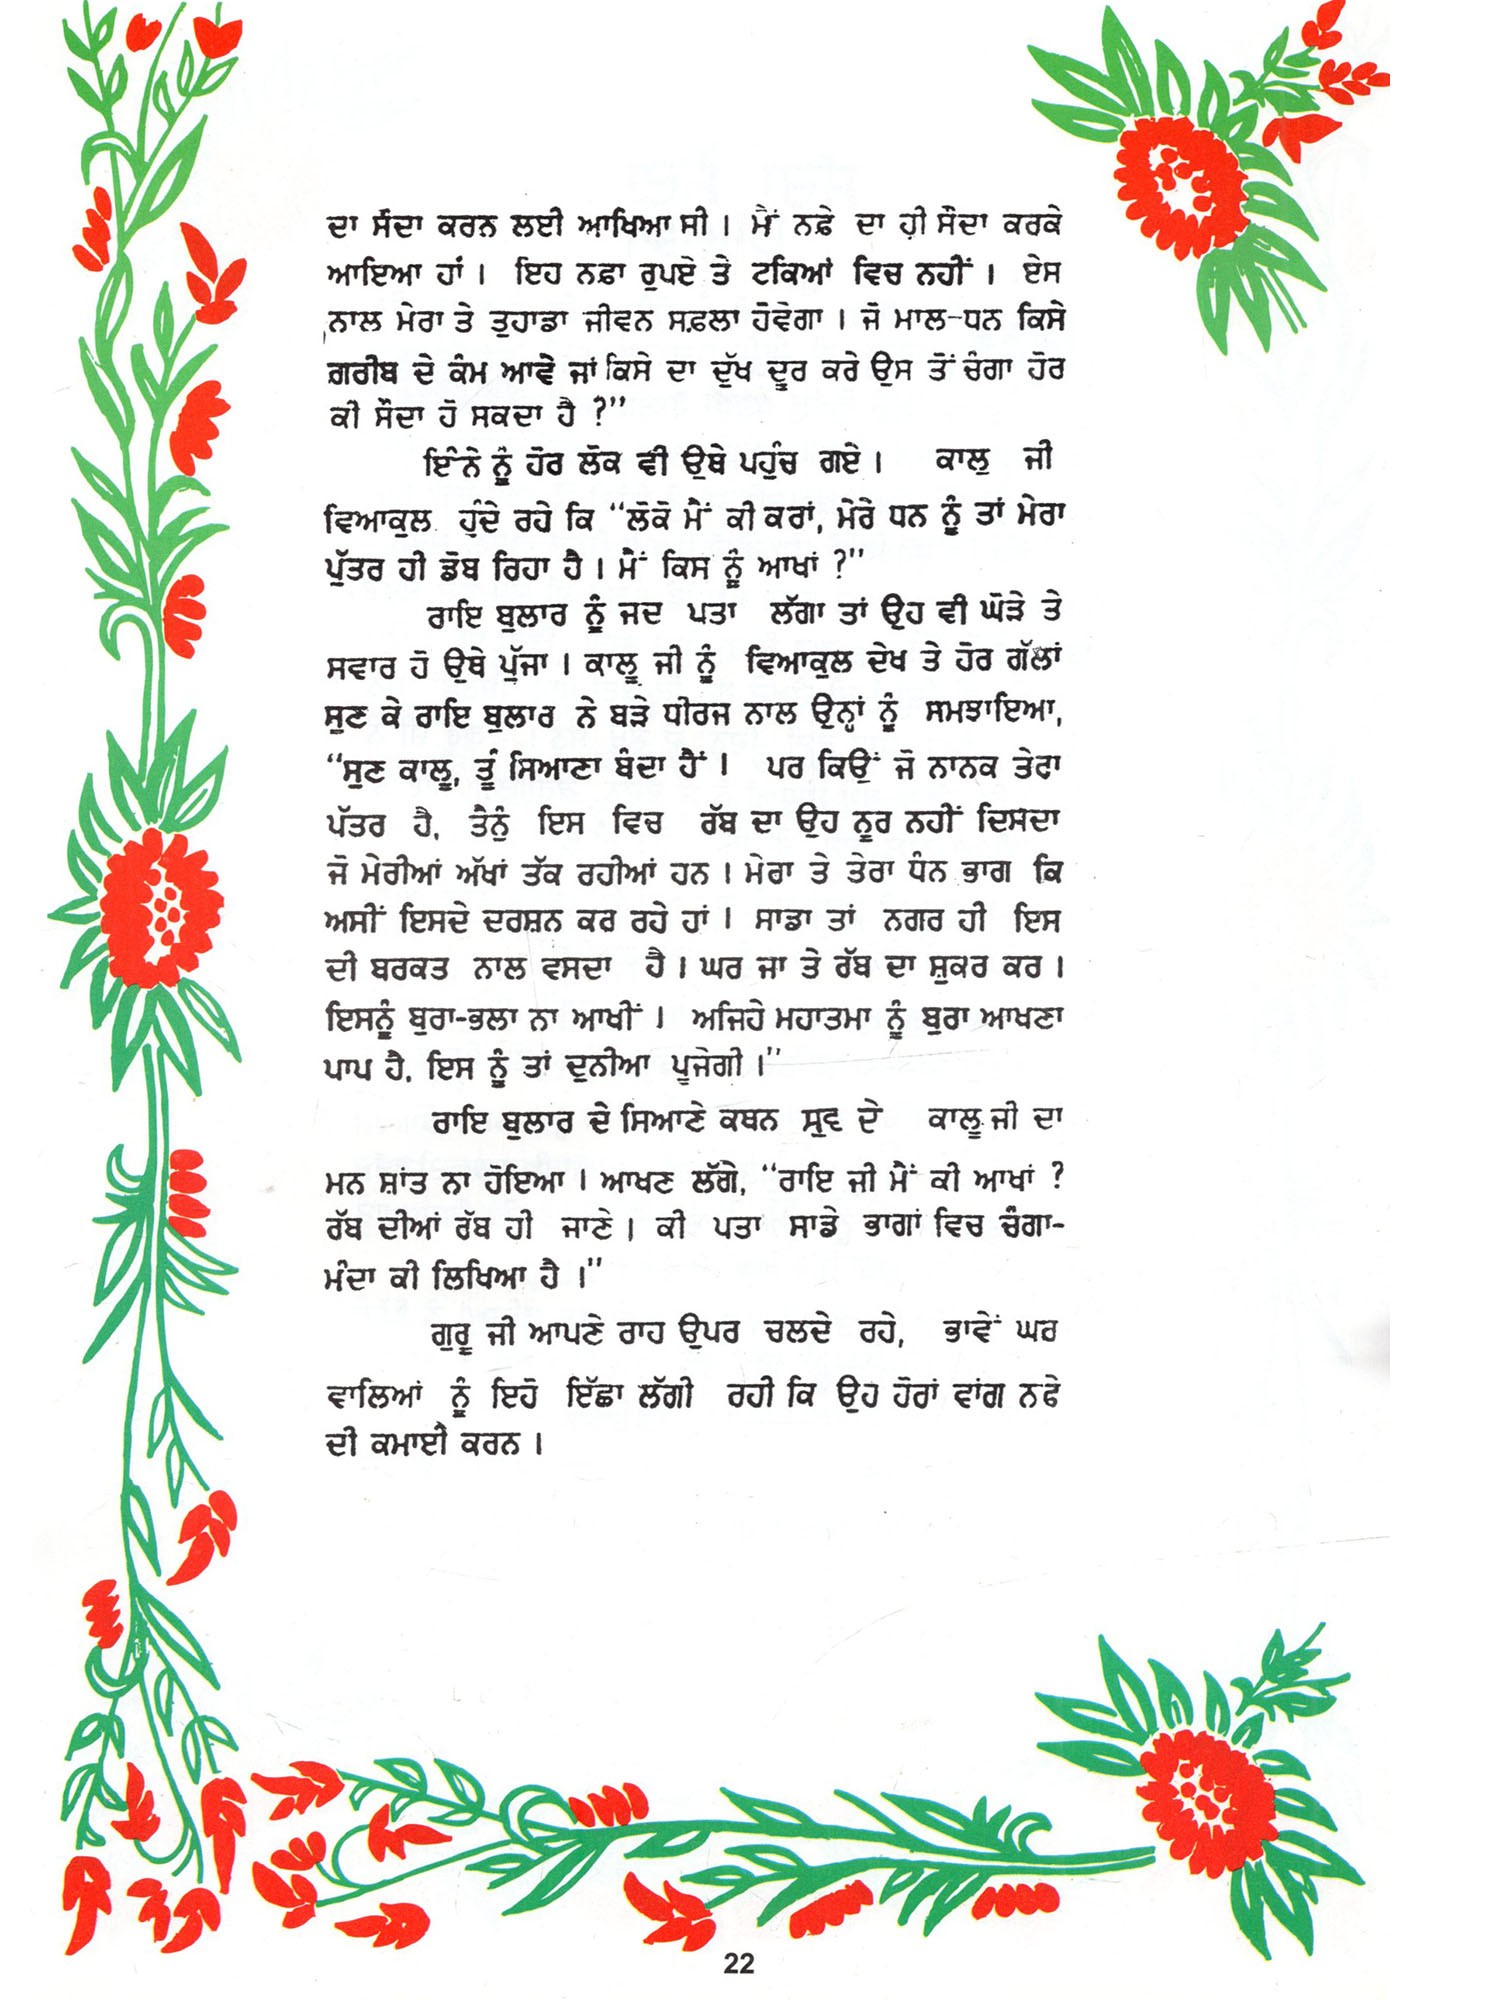 ਦਾ ਸੌਦਾ ਕਰਨ ਲਈ ਆਖਿਆ ਸੀ । ਮੈਂ ਨਫ਼ੇ ਦਾ ਹੀ ਸੌਦਾ ਕਰਕੇ
ਆਇਆ ਹਾਂ । ਇਹ ਨਫ਼ਾ ਰੁਪਏ ਤੇ ਟਕਿਆਂ ਵਿਚ ਨਹੀਂ । ਏਸ
ਨਾਲ ਮੇਰਾ ਤੇ ਤੁਹਾਡਾ ਜੀਵਨ ਸਫ਼ਲਾ ਹੋਵੇਗਾ । ਜੋ ਮਾਲ-ਧਨ ਕਿਸੇ
ਗ਼ਰੀਬ ਦੇ ਕੰਮ ਆਵੇ ਜਾਂ ਕਿਸੇ ਦਾ ਦੁੱਖ ਦੂਰ ਕਰੇ ਉਸ ਤੋਂ ਚੰਗਾ ਹੋਰ
ਕੀ ਸੌਦਾ ਹੋ ਸਕਦਾ ਹੈ ?”
ਇੰਨੇ ਨੂੰ ਹੋਰ ਲੋਕ ਵੀ ਉਥੇ ਪਹੁੰਚ ਗਏ । ਕਾਲੂ ਜੀ
ਵਿਆਕੁਲ ਹੁੰਦੇ ਰਹੇ ਕਿ “ਲੋਕੋ ਮੈਂ ਕੀ ਕਰਾਂ, ਮੇਰੇ ਧਨ ਨੂੰ ਤਾਂ ਮੇਰਾ
ਪੁੱਤਰ ਹੀ ਡੋਬ ਰਿਹਾ ਹੈ । ਮੈਂ ਕਿਸ ਨੂੰ ਆਖਾਂ ?”
ਰਾਇ ਬੁਲਾਰ ਨੂੰ ਜਦ ਪਤਾ ਲੱਗਾ ਤਾਂ ਉਹ ਵੀ ਘੋੜੇ ਤੇ
ਸਵਾਰ ਹੋ ਉਥੇ ਪੁੱਜਾ । ਕਾਲੂ ਜੀ ਨੂੰ ਵਿਆਕੁਲ ਦੇਖ ਤੇ ਹੋਰ ਗੱਲਾਂ
ਸੁਣ ਕੇ ਰਾਇ ਬੁਲਾਰ ਨੇ ਬੜੇ ਧੀਰਜ ਨਾਲ ਉਨ੍ਹਾਂ ਨੂੰ ਸਮਝਾਇਆ,
“ਸੁਣ ਕਾਲੂ, ਤੂੰ ਸਿਆਣਾ ਬੰਦਾ ਹੈਂ । ਪਰ ਕਿਉਂ ਜੋ ਨਾਨਕ ਤੇਰਾ
ਪੱਤਰ ਹੈ, ਤੈਨੂੰ ਇਸ ਵਿਚ ਰੱਬ ਦਾ ਉਹ ਨੂਰ ਨਹੀਂ ਦਿਸਦਾ
ਜੋ ਮੇਰੀਆਂ ਅੱਖਾਂ ਤੱਕ ਰਹੀਆਂ ਹਨ । ਮੇਰਾ ਤੇ ਤੇਰਾ ਧੰਨ ਭਾਗ ਕਿ
ਅਸੀਂ ਇਸਦੇ ਦਰਸ਼ਨ ਕਰ ਰਹੇ ਹਾਂ । ਸਾਡਾ ਤਾਂ ਨਗਰ ਹੀ ਇਸ
ਦੀ ਬਰਕਤ ਨਾਲ ਵਸਦਾ ਹੈ । ਘਰ ਜਾ ਤੇ ਰੱਬ ਦਾ ਸ਼ੁਕਰ ਕਰ ।
ਇਸਨੂੰ ਬੁਰਾ-ਭਲਾ ਨਾ ਆਖੀਂ । ਅਜਿਹੇ ਮਹਾਤਮਾ ਨੂੰ ਬੁਰਾ ਆਖਣਾ
ਪਾਪ ਹੈ, ਇਸ ਨੂੰ ਤਾਂ ਦੁਨੀਆ ਪੂਜੇਗੀ ।”
ਰਾਇ ਬੁਲਾਰ ਦੇ ਸਿਆਣੇ ਕਥਨ ਸੁਣ ਕੇ ਕਾਲੂ ਜੀ ਦਾ
ਮਨ ਸ਼ਾਂਤ ਨਾ ਹੋਇਆ । ਆਖਣ ਲੱਗੇ, “ਰਾਇ ਜੀ ਮੈਂ ਕੀ ਆਖਾਂ ?
ਰੱਬ ਦੀਆਂ ਰੱਬ ਹੀ ਜਾਣੇ । ਕੀ ਪਤਾ ਸਾਡੇ ਭਾਗਾਂ ਵਿਚ ਚੰਗਾ-
ਮੰਦਾ ਕੀ ਲਿਖਿਆ ਹੈ ।”
ਗੁਰੂ ਜੀ ਆਪਣੇ ਰਾਹ ਉਪਰ ਚਲਦੇ ਰਹੇ, ਭਾਵੇਂ ਘਰ
ਵਾਲਿਆਂ ਨੂੰ ਇਹੋ ਇੱਛਾ ਲੱਗੀ ਰਹੀ ਕਿ ਉਹ ਹੋਰਾਂ ਵਾਂਗ ਨਫੇ
ਦੀ ਕਮਾਈ ਕਰਨ ।
22